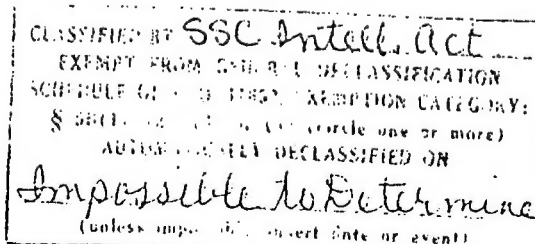 CLASSIFIED BY SSC Intell. Act
EXEMPT FROM GENERAL DECLASSIFICATION
SCHEDULE EXEMPTION CATEGORY:
§ (circle one or more)
AUTOMATICALLY DECLASSIFIED ON
Impossible to Determine
(unless insert date or event)